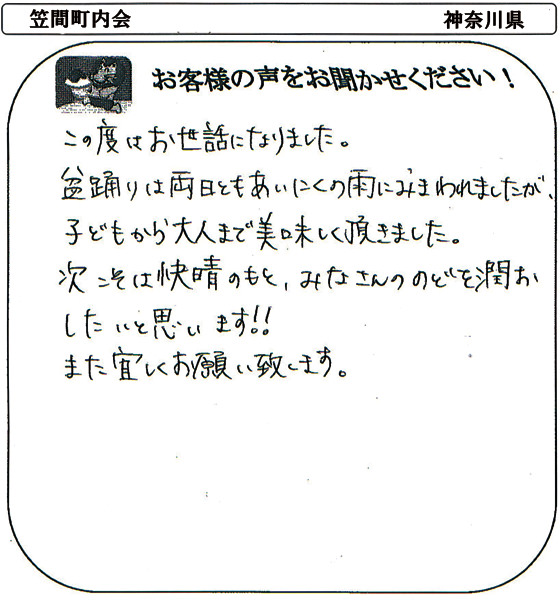 笠間町内会 神奈川県
お客様の声をお聞かせください！
この度はお世話になりました。
盆踊りは両日ともあいにくの雨にみまわれましたが、
子どもから大人まで美味しく頂きました。
次こそは快晴のもと、みなさんののどを潤お
したいと思います!!
また宜しくお願い致します。